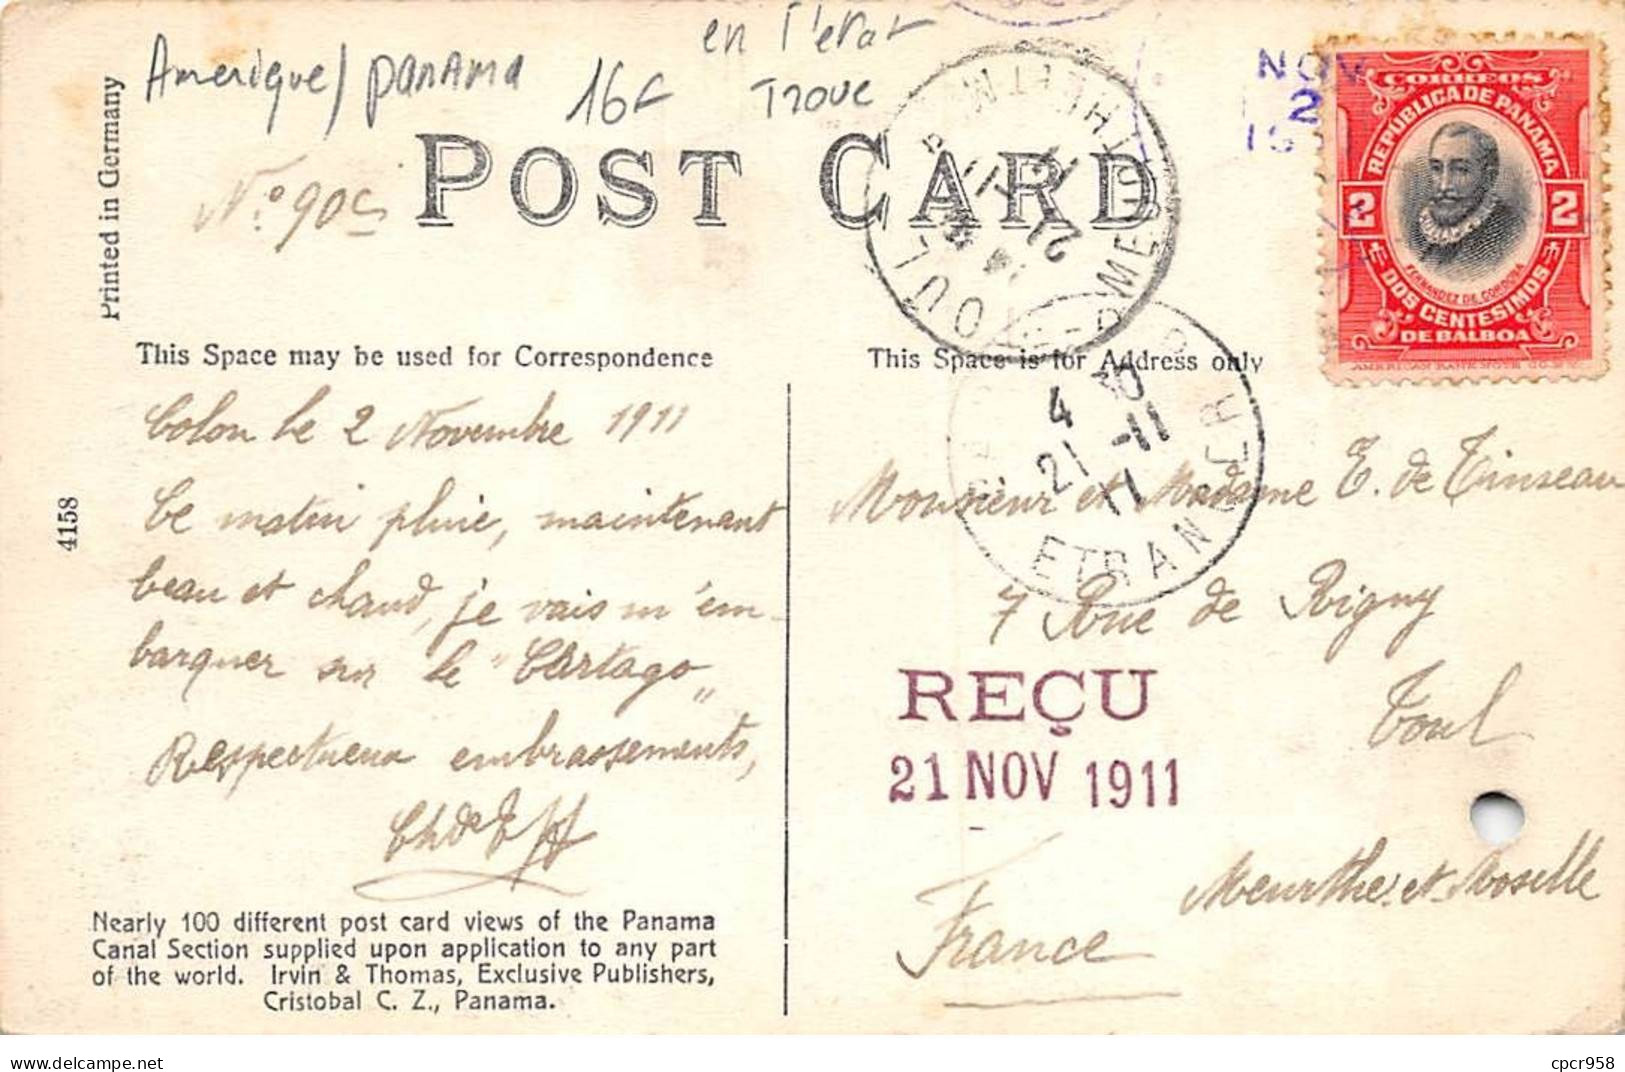 Amerique/ panama
16€
en l'etat
Troue
N.º 90c
Printed in Germany
POST CARD
NOV
2
CORREOS
REPUBLICA DE PANAMA
2 2
FERNANDEZ DE CORDOBA
DOS CENTESIMOS
DE BALBOA
AMERICAN BANK NOTE CO. N.Y.
TOUL
MEURTHE ET M
21
This Space may be used for Correspondence
This Space is for Address only
4 30
21 -11
11
ETRANGER
4158
Colon le 2 Novembre 1911
Ce matin pluie, maintenant
beau et chaud, je vais m'em-
barquer sur le "Cartago"
Respectueux embrassements,
Monsieur et Madame E. de Tinseau
7 Rue de Rigny
Toul
REÇU
21 NOV 1911
Meurthe et Moselle
France
Nearly 100 different post card views of the Panama
Canal Section supplied upon application to any part
of the world. Irvin & Thomas, Exclusive Publishers,
Cristobal C. Z., Panama.
cpcr958